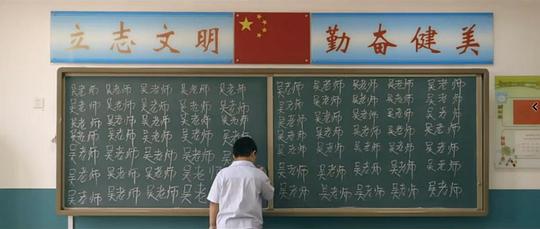 立志文明 勤奋健美
吴老师 吴老师 吴老师 吴老师 吴老师
吴老师 吴老师 吴老师 吴老师 吴老师
吴老师 吴老师 吴老师 吴老师 吴老师
吴老师 吴老师 吴老师 吴老师 吴老师
吴老师 吴老师 吴老师 吴老师
吴老师 吴老师 吴老师 吴老师
吴老师 吴老师 吴老师 吴老
吴老师 吴老师 吴老师 吴老师 吴老师
吴老师 吴老师 吴老师 吴老师 吴老师
吴老师 吴老师 吴老师 吴老师 吴老师
吴老师 吴老师 吴老师 吴老师 吴老师
吴老师 吴老师 吴老师 吴老师 吴老师
吴老师 吴老师 吴老师 吴老师 吴老师
吴老师 吴老师 吴老师 吴老师 吴老师